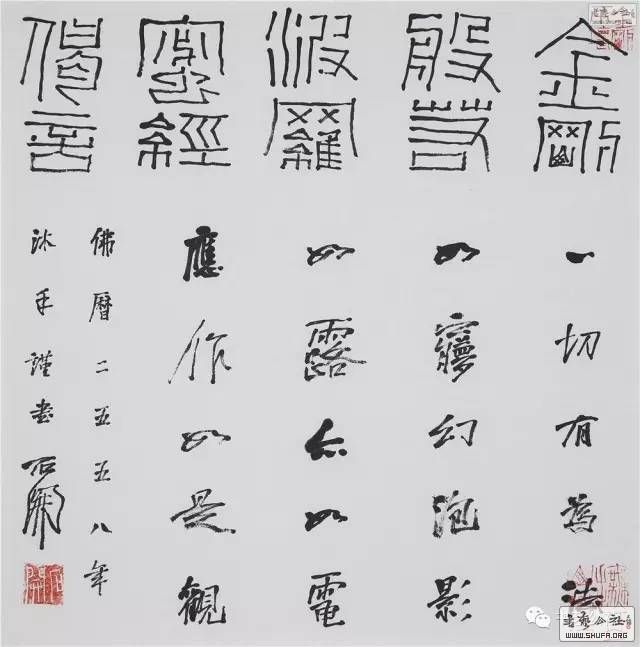 金剛
般若
波羅
蜜經
偈言
一切有為法
如夢幻泡影
如露亦如電
應作如是觀
佛曆二五五八年
沐手謹書 石開
書藝公社
WWW.SHUFA.ORG